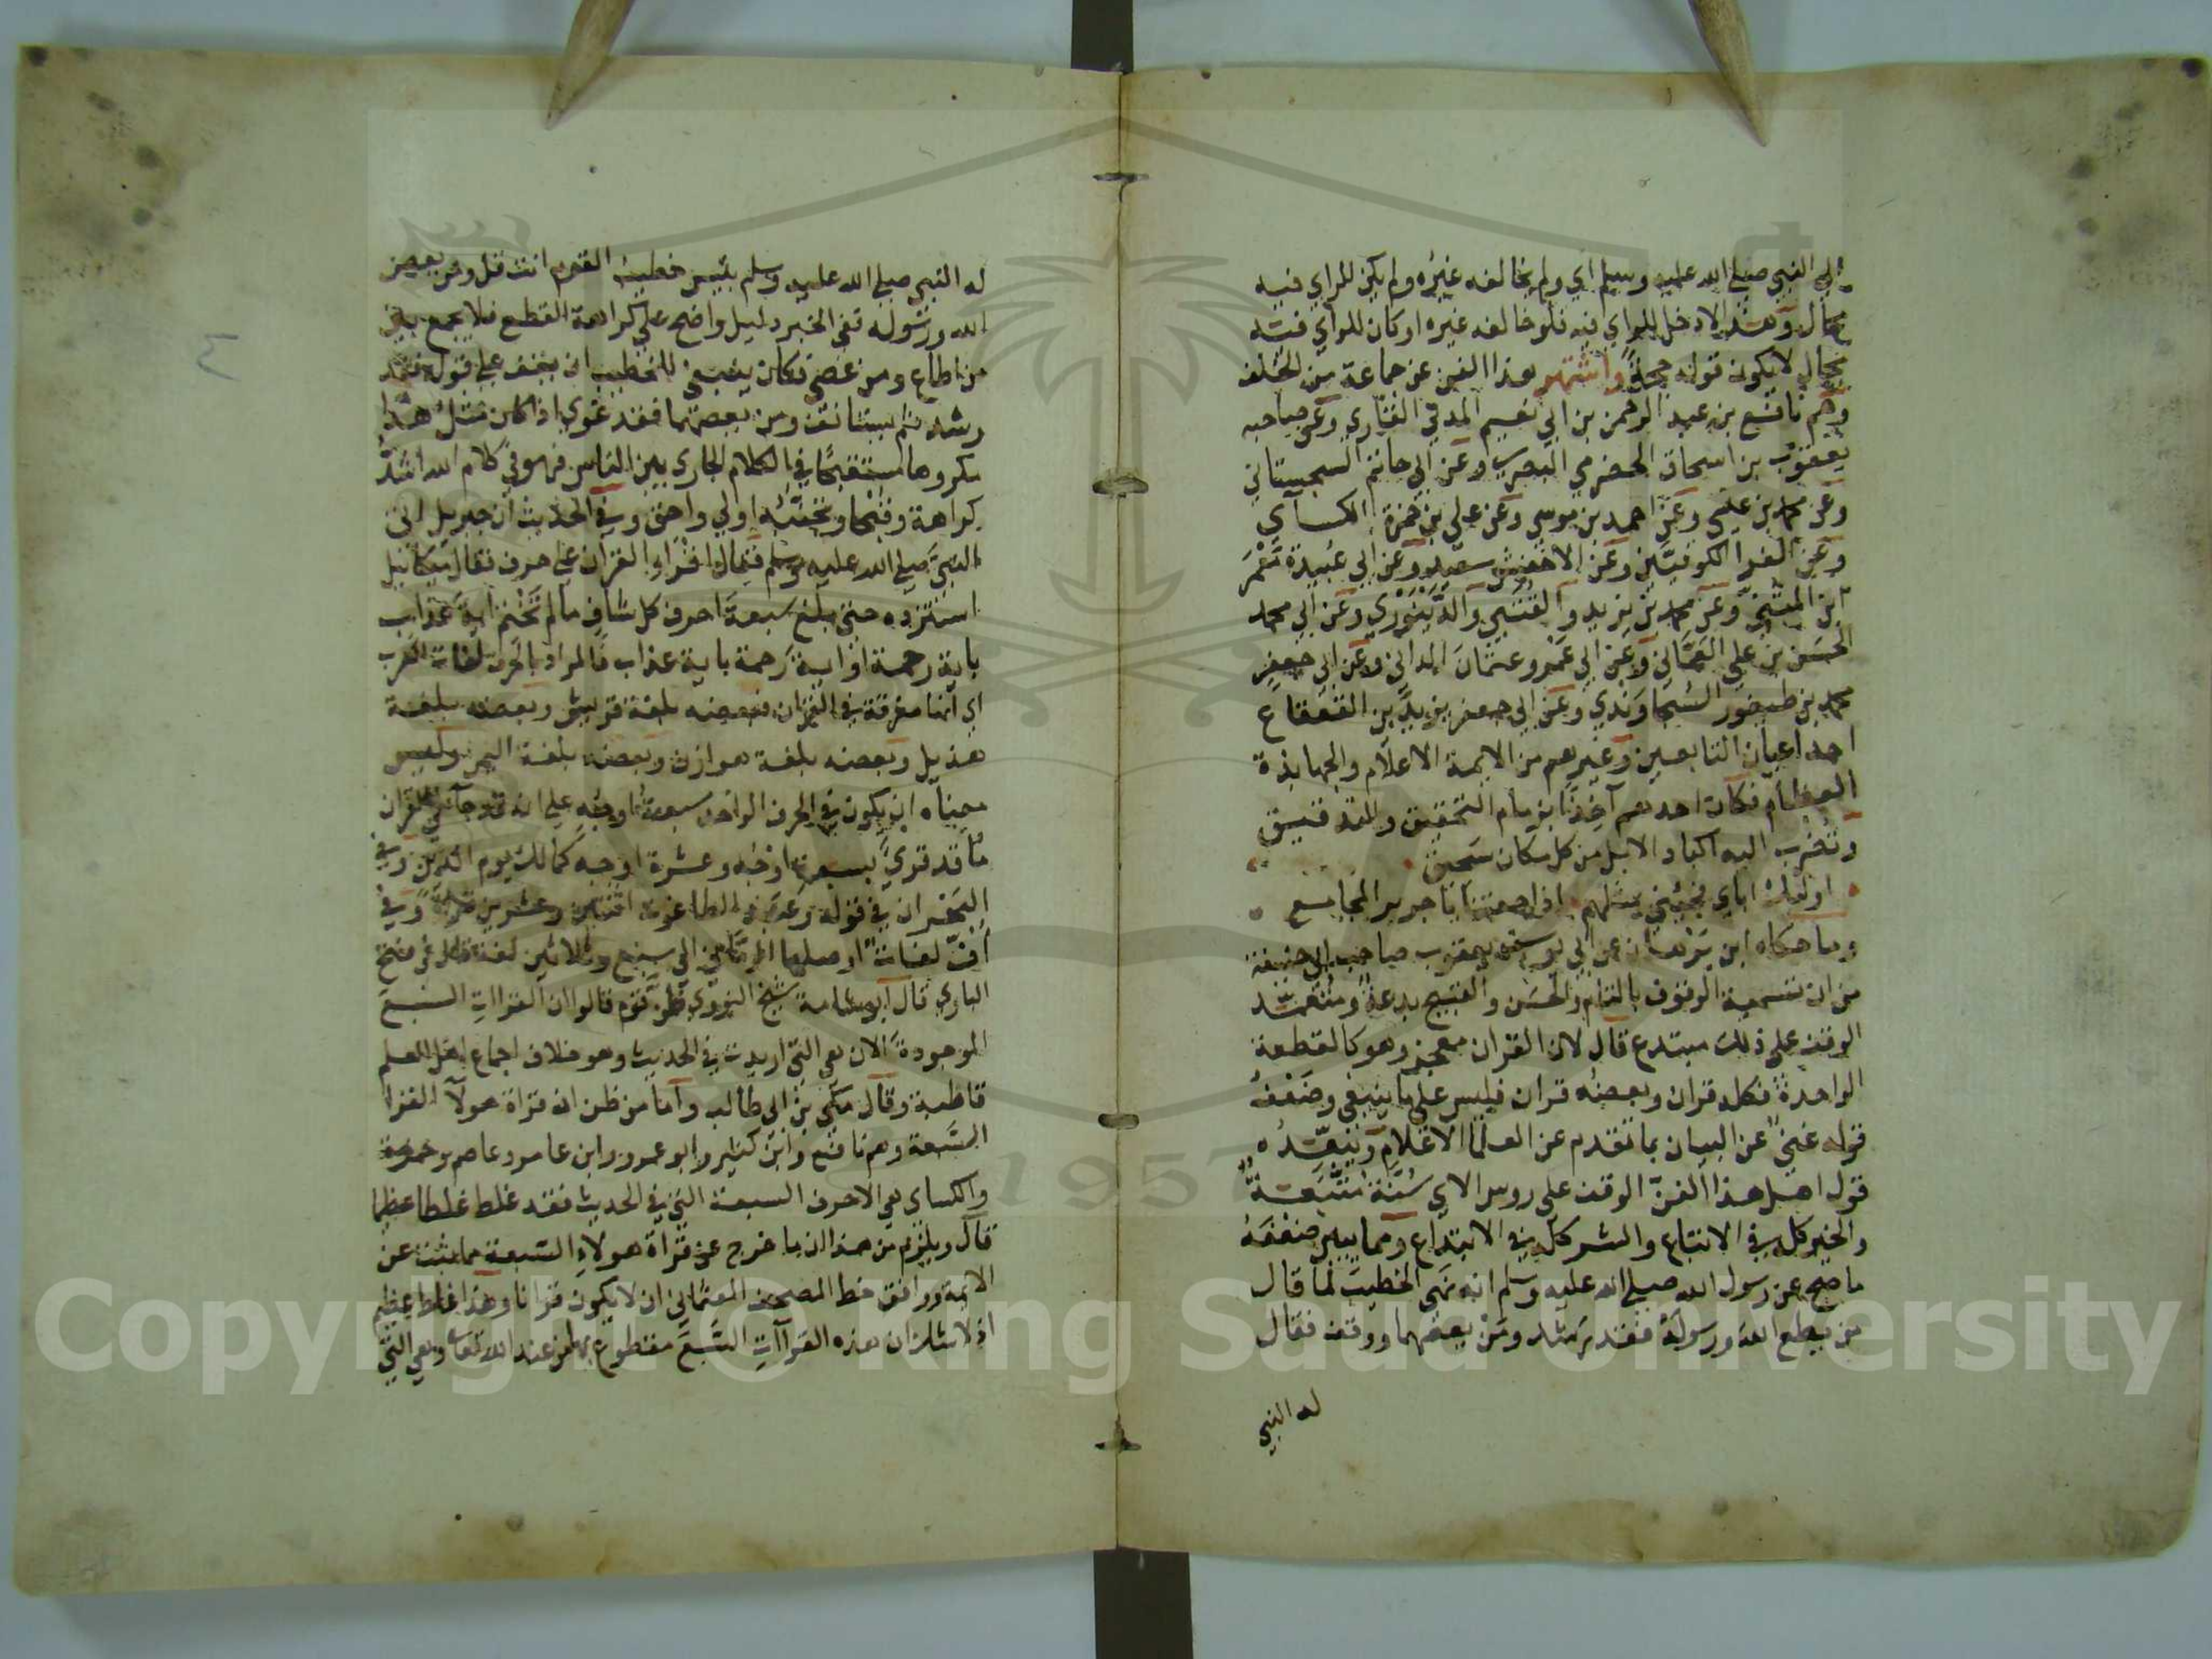 الى النبي صلى الله عليه وسلم اي ولم يخالفه غيره ولم يكن للراي فيه
مجال وهذا لا دخل للراي فيه فلو خالفه غيره او كان للراي فيه
مجال لا يكون قوله حجة واشتهر هذا الفن عن جماعة من الخلف
وهم نافع بن عبد الرحمن بن ابي نعيم المدني القاري وعن صاحبه
يعقوب بن اسحاق الحضرمي البصري وعن ابي حاتم السجستاني
وعن محمد بن عيسى وعن احمد بن موسى وعن على بن حمزة الكساي
وعن الفرا الكوفيين وعن الاخفش سعيد وعن ابي عبيدة معمر
ابن المثنى وعن محمد بن يزيد والقتبي والدينوري وعن ابي محمد
الحسن بن علي العماني وعن ابي عمرو عثمان الداني وعن ابي جعفر
محمد بن طيفور السجاوندي وعن ابي جعفر يزيد بن القعقاع
احد اعيان التابعين وغيرهم من الايمة الاعلام والجهابذة
العظام فكان احدهم آخذا بزمام التحقيق والتدقيق
وتضرب اليه اكباد الابل من كل مكان سحيق
اولئك اباي فجئني بمثلهم اذا جمعتنا يا جرير المجامع
وما حكاه ابن برهان عن ابي يوسف يعقوب صاحب ابي حنيفة
من ان تسمية الوقوف بالتام والحسن والقبيح بدعة ومتعمد
الوقف على ذلك مبتدع قال لان القران معجز وهو كالقطعة
الواحدة فكله قران وبعضه قران فليس على ما ينبغي وضعف
قوله غني عن البيان بما تقدم عن العلما الاعلام ويبعده
قول اهل هذا الفن الوقف على روس الاي سنة متبعة
والخير كله في الاتباع والشر كله في الابتداع ومما يبين ضعفه
ما صح عن رسول الله صلى الله عليه وسلم انه نهى الخطيب لما قال
من يطع الله ورسوله فقد رشد ومن يعصهما ووقف فقال
له النبي
له النبي صلى الله عليه وسلم بئيس خطيب القوم انت قل ومن يعص
الله ورسوله ففي الخبر دليل واضح على كراهة القطع فلا يجمع بين
من اطاع ومن عصى فكان ينبغي للخطيب ان يقف على قوله فقد
رشد ثم يستانف ومن يعصهما فقد غوي اذا كان مثل هذا
مكروها مستقبحا في الكلام الجاري بين الناس فهو في كلام الله اشد
كراهة وقبحا وتجنبه اولي واحق وفي الحديث ان جبريل اتى
النبي صلى الله عليه وسلم فقال اقراء القران على حرف فقال ميكائيل
استزده حتى بلغ سبعة احرف كل شاف ما لم تختم اية عذاب
باية رحمة او اية رحمة باية عذاب فالمراد بالحرف لغات العرب
اي انها مفرقة في القران فبعضه بلغة قريش وبعضه بلغة
هذيل وبعضه بلغة هوازن وبعضه بلغة اليمن وليس
معناه ان يكون في الحرف الواحد سبعة اوجه على انه قد جا في القران
ما قد قري بسبعة اوجه وعشرة اوجه كمالك يوم الدين وفي
البحر ان في قوله وعبد الطاغوت اثنتين وعشرين قراءة وفي
اف لغات اوصلها الرماني الى سبع وثلاثين لغة قال في فتح
الباري قال ابو شامة شيخ النووي ظن قوم قالوا ان القراات السبع
الموجودة الان هي التي اريدت في الحديث وهو خلاف اجماع اهل العلم
قاطبة وقال مكي بن ابي طالب واما من ظن ان قراة هولآ القرا
السبعة وهم نافع وابن كثير وابو عمرو وابن عامر وعاصم وحمزة
والكساي هي الاحرف السبعة التي في الحديث فقد غلط غلطا عظيما
قال ويلزم من هذا ان ما خرج عن قراة هولاء السبعة مما ثبت عن
الايمة ووافق خط المصحف العثماني ان لا يكون قرانا وهذا غلط عظيم
اذ لا شك ان هذه القراآت السبع مقطوع بها من عند الله تعالى وهي التي
٤